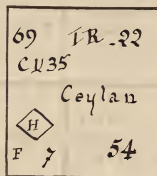 69 IR-22
CU35
Ceylan
H
F 7 54